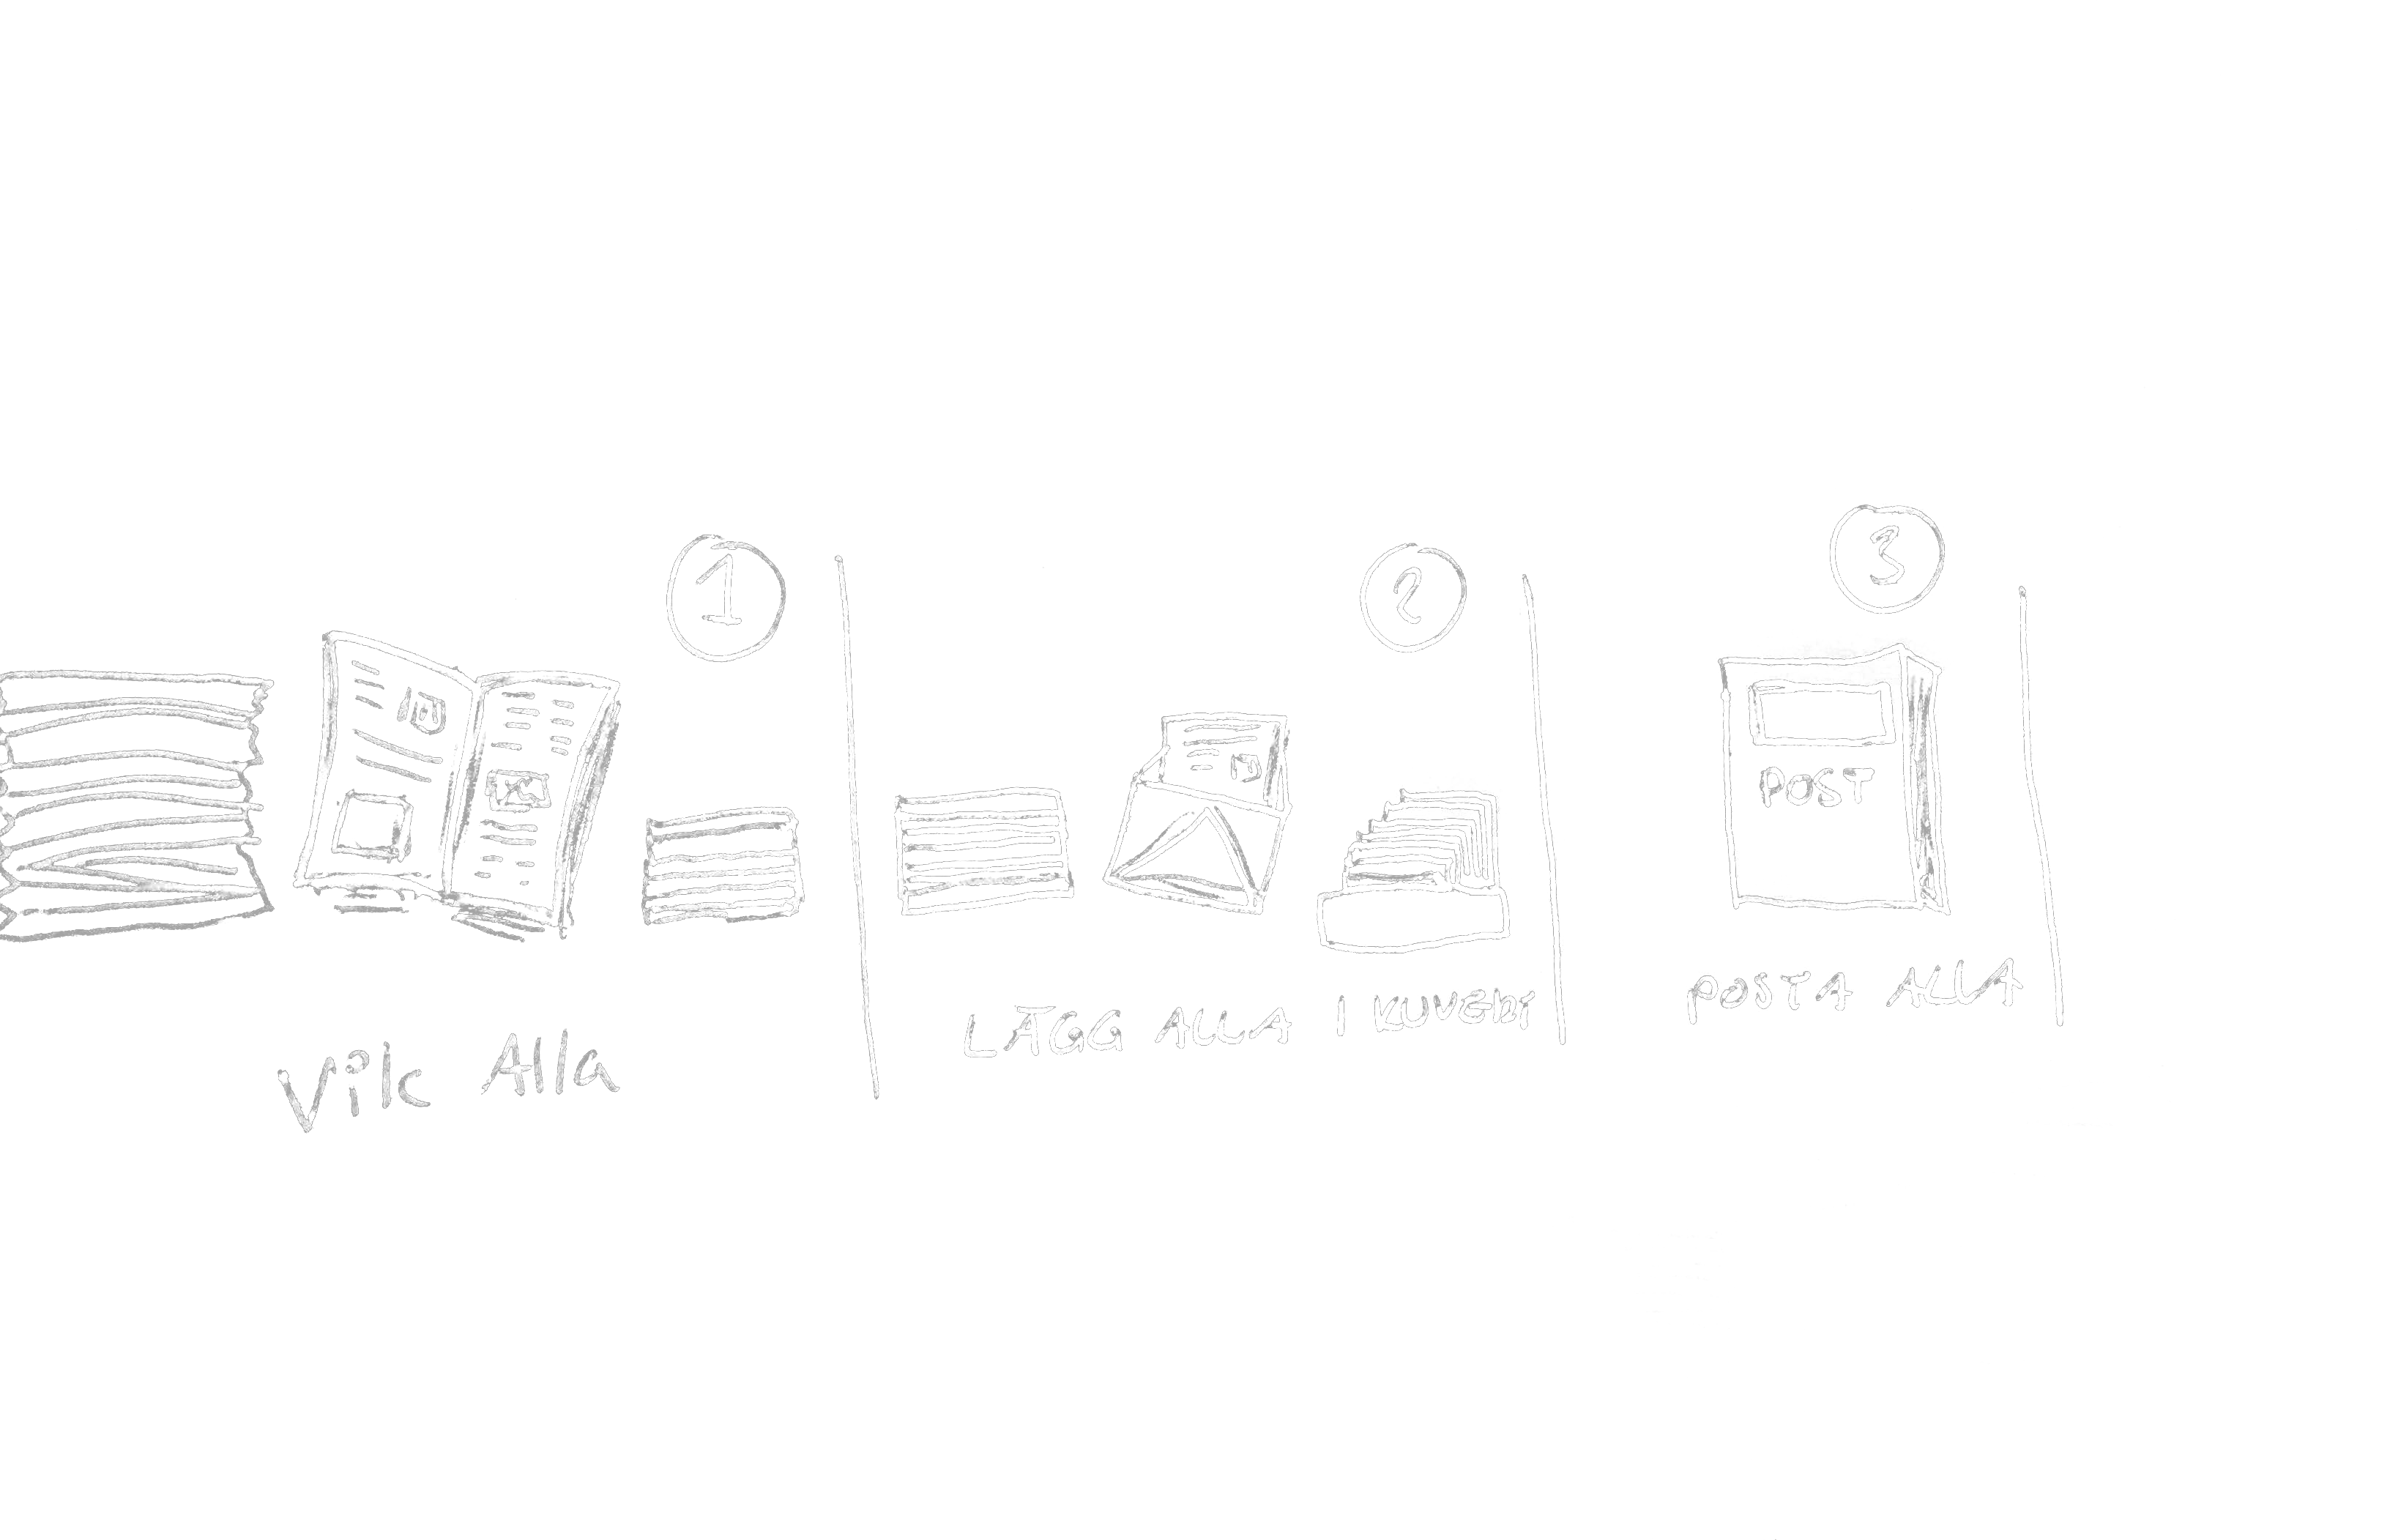 1
Vik Alla
2
LÄGG ALLA I KUVERT
3
POST
POSTA ALLA